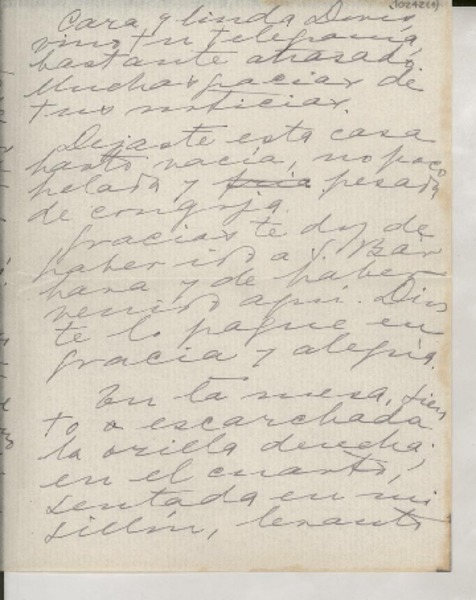 Cara y linda Doris,
vino tu telegrama,
bastante atrasado.
Muchas gracias de
tus noticias.
Dejaste esta casa
harto vacía, no poco
helada y fria pesada
de congoja.
Gracias te doy de
haber ido a S. Bár
bara y de haber
venido aquí. Dios
te lo pague en
gracia y alegría.
En la mesa, sien
to o escarchada
la orilla derecha.
en el cuarto,
sentada en mi
sillón, levanto